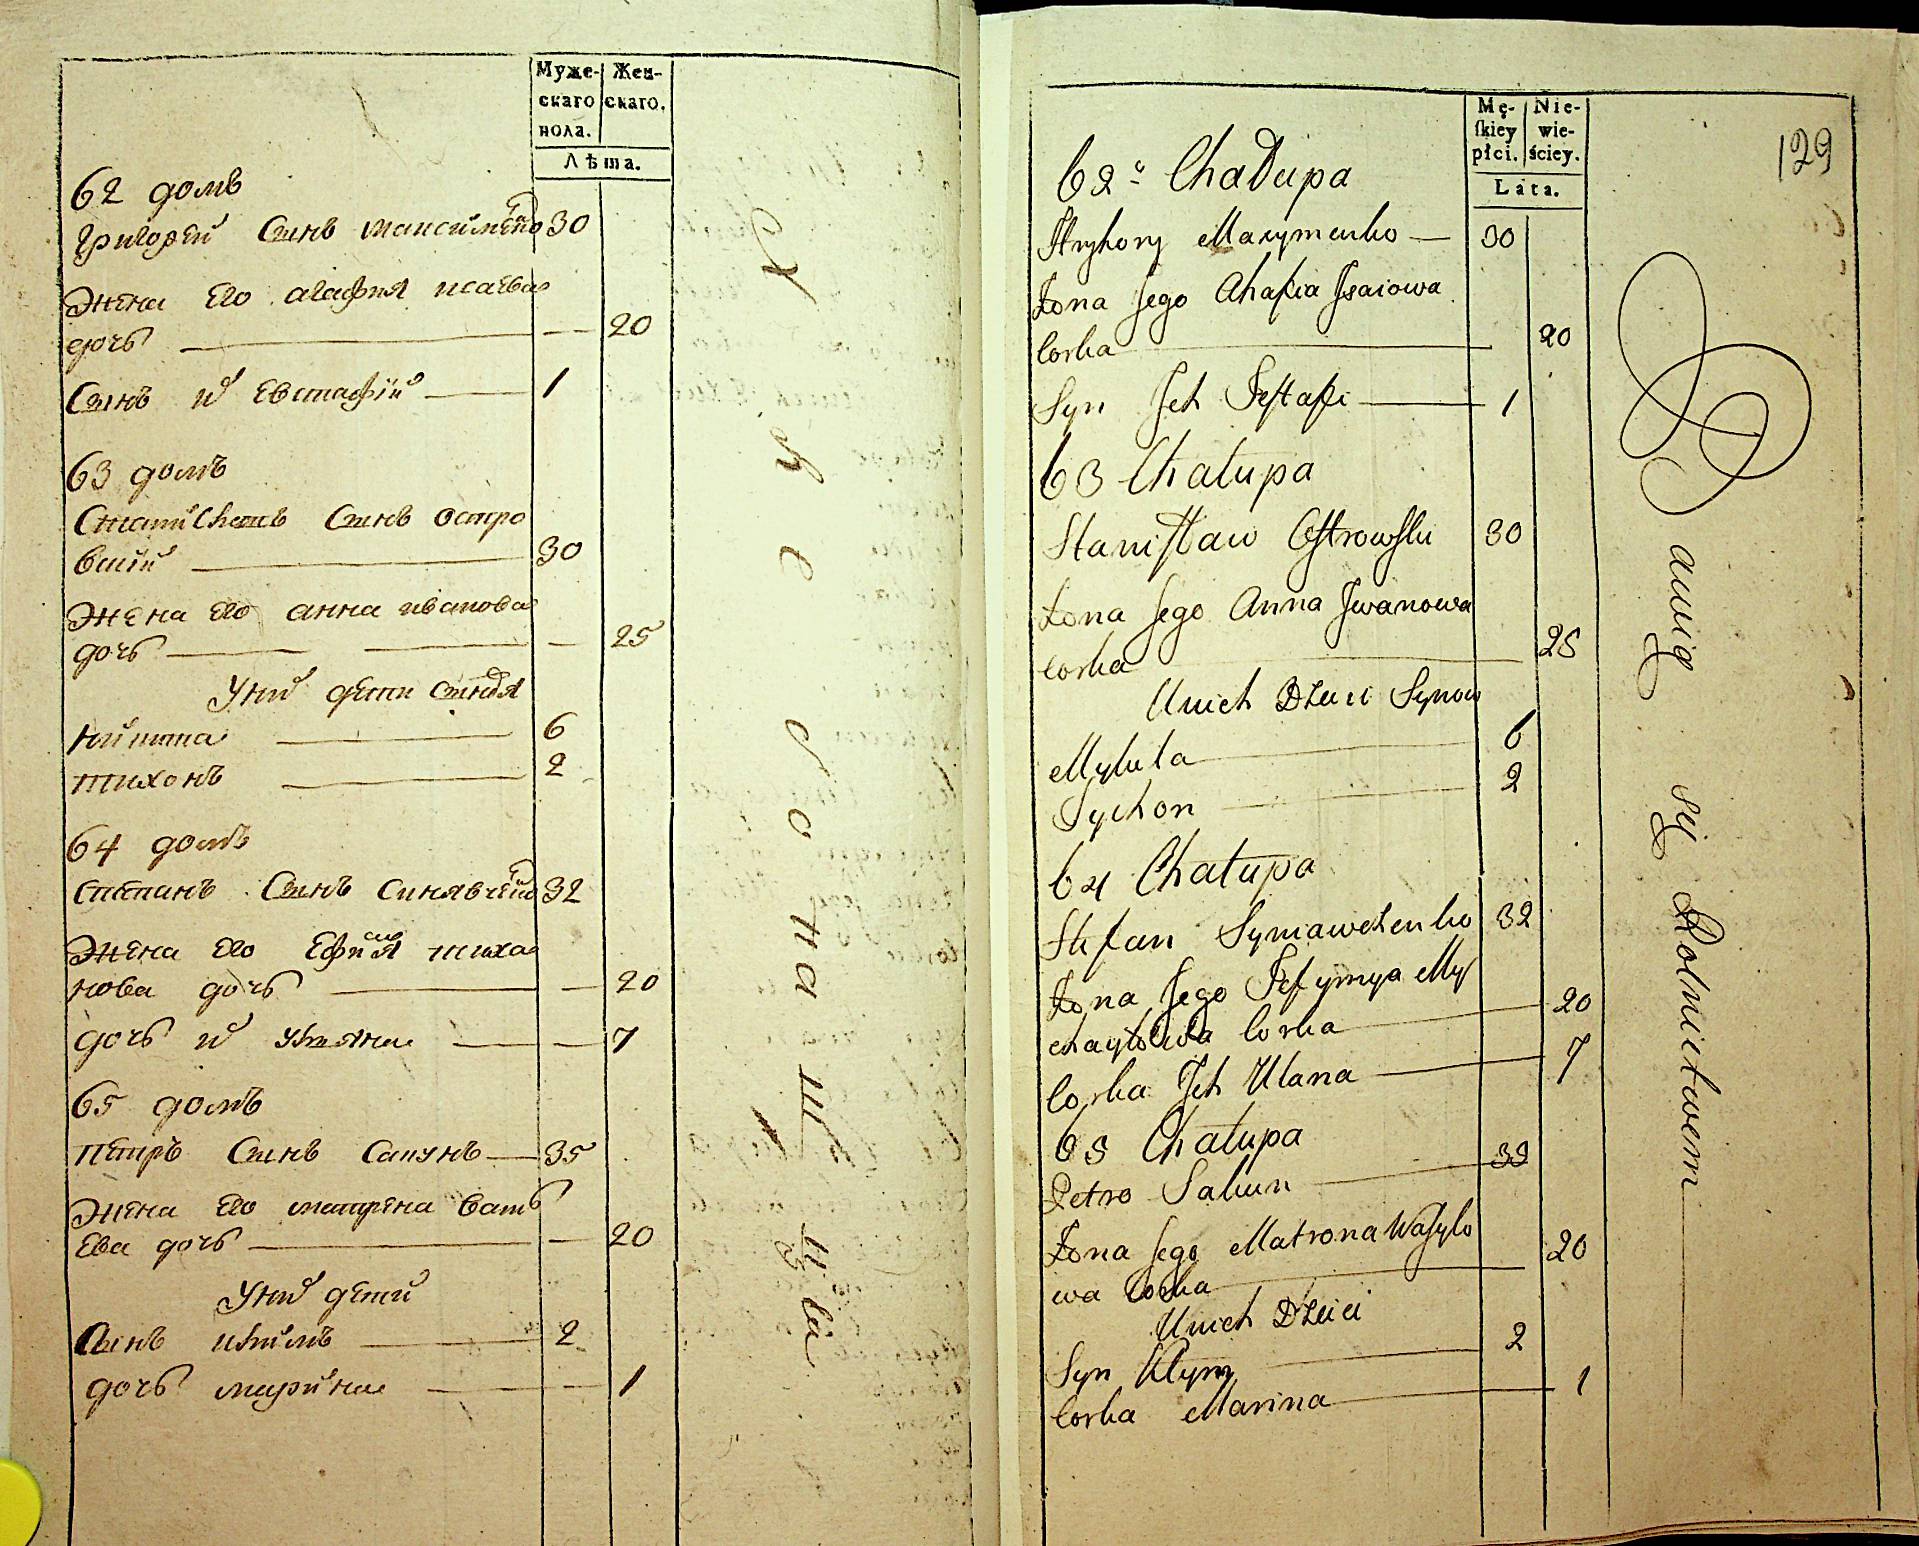 Муже-
скаго
пола.
Жен-
скаго.
Лѣта.
62 домъ
Григорей Сынъ максименко 30
Жена Его агафия исаева
дочь 20
Сынъ их Евстафiй 1
63 домъ
Станиславъ Сынъ остро
вский 30
Жена Его анна иванова
дочь 25
Уних дети Синовя
Никита 6
тихонъ 2
64 домъ
Степанъ Сынъ Синявченко 32
Жена Его Ефимия миха
лова дочь 20
дочь их Уляна 7
65 домъ
Петръ Сынъ Сапунъ 35
Жена Его матрена васи
ева дочь 20
Уних дети
Сынъ климъ 2
дочь марина 1
129
Mę-
ſkiey
płci.
Nie-
wie-
ściey.
Lata.
62 Chałupa
Hryhory Maxymenko 30
Żona Jego Ahafia Jsaiowa
Corka 20
Syn Jch Jeſtafi 1
63 Chałupa
Staniſław Oſtrowſki 30
Żona Jego Anna Jwanowa
Corka 25
Unich Dzieci Synow
Mykita 6
Tychon 2
64 Chałupa
Stefan Syniawczenko 32
Żona Jego Jefymya My
chayłowa Corka 20
Corka Jch Ulana 7
65 Chałupa
Petro Sakun 35
Żona Jego Matrona Waſylo
wa Corka 20
Unich Dzieci
Syn Klym 2
Corka Marina 1
Bawią się Rolnictwem